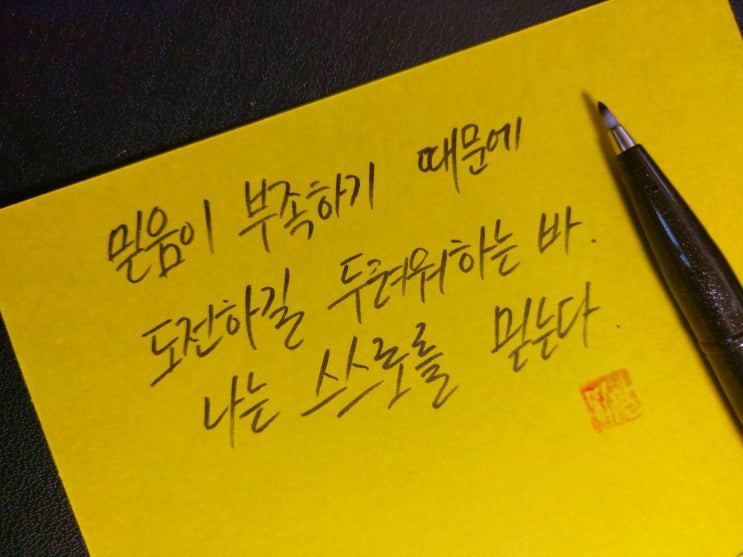 믿음이 부족하기 때문에
도전하길 두려워하는 바.
나는 스스로를 믿는다.